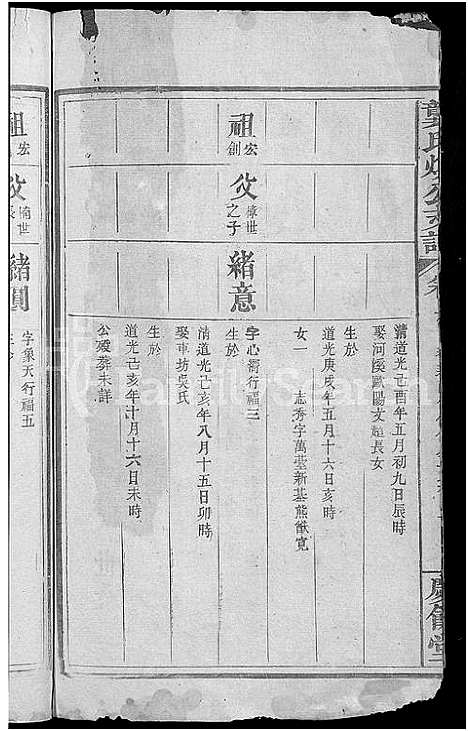 龔氏煥公支譜
慶會堂
清道光己酉年五月初九日辰時
娶河溪歐陽文超長女
生於
道光庚戌年五月十六日亥時
女一
志秀字萬瑩新基熊猷寬
祖
宏創
父
之子
緒意
字心
行福三
生於
清道光己亥年八月十五日卯時
娶車坊吳氏
生於
道光己亥年十月十六日未時
公歿葬未詳
祖
宏
父
緒圓
字象天行福五
FamilySearch